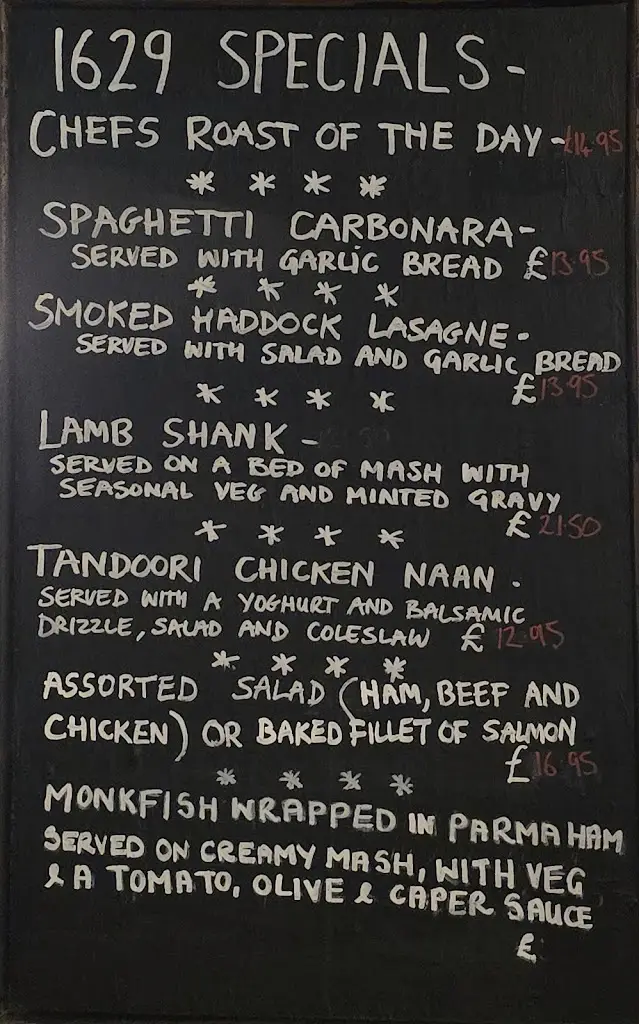 1629 SPECIALS-
CHEFS ROAST OF THE DAY-£14.95
* * * *
SPAGHETTI CARBONARA-
SERVED WITH GARLIC BREAD £13.95
* * * *
SMOKED HADDOCK LASAGNE-
SERVED WITH SALAD AND GARLIC BREAD
£13.95
* * * *
LAMB SHANK-
SERVED ON A BED OF MASH WITH
SEASONAL VEG AND MINTED GRAVY
£21.50
* * * *
TANDOORI CHICKEN NAAN.
SERVED WITH A YOGHURT AND BALSAMIC
DRIZZLE, SALAD AND COLESLAW £12.95
* * * *
ASSORTED SALAD (HAM, BEEF AND
CHICKEN) OR BAKED FILLET OF SALMON
£16.95
* * * *
MONKFISH WRAPPED IN PARMA HAM
SERVED ON CREAMY MASH, WITH VEG
& A TOMATO, OLIVE & CAPER SAUCE
£